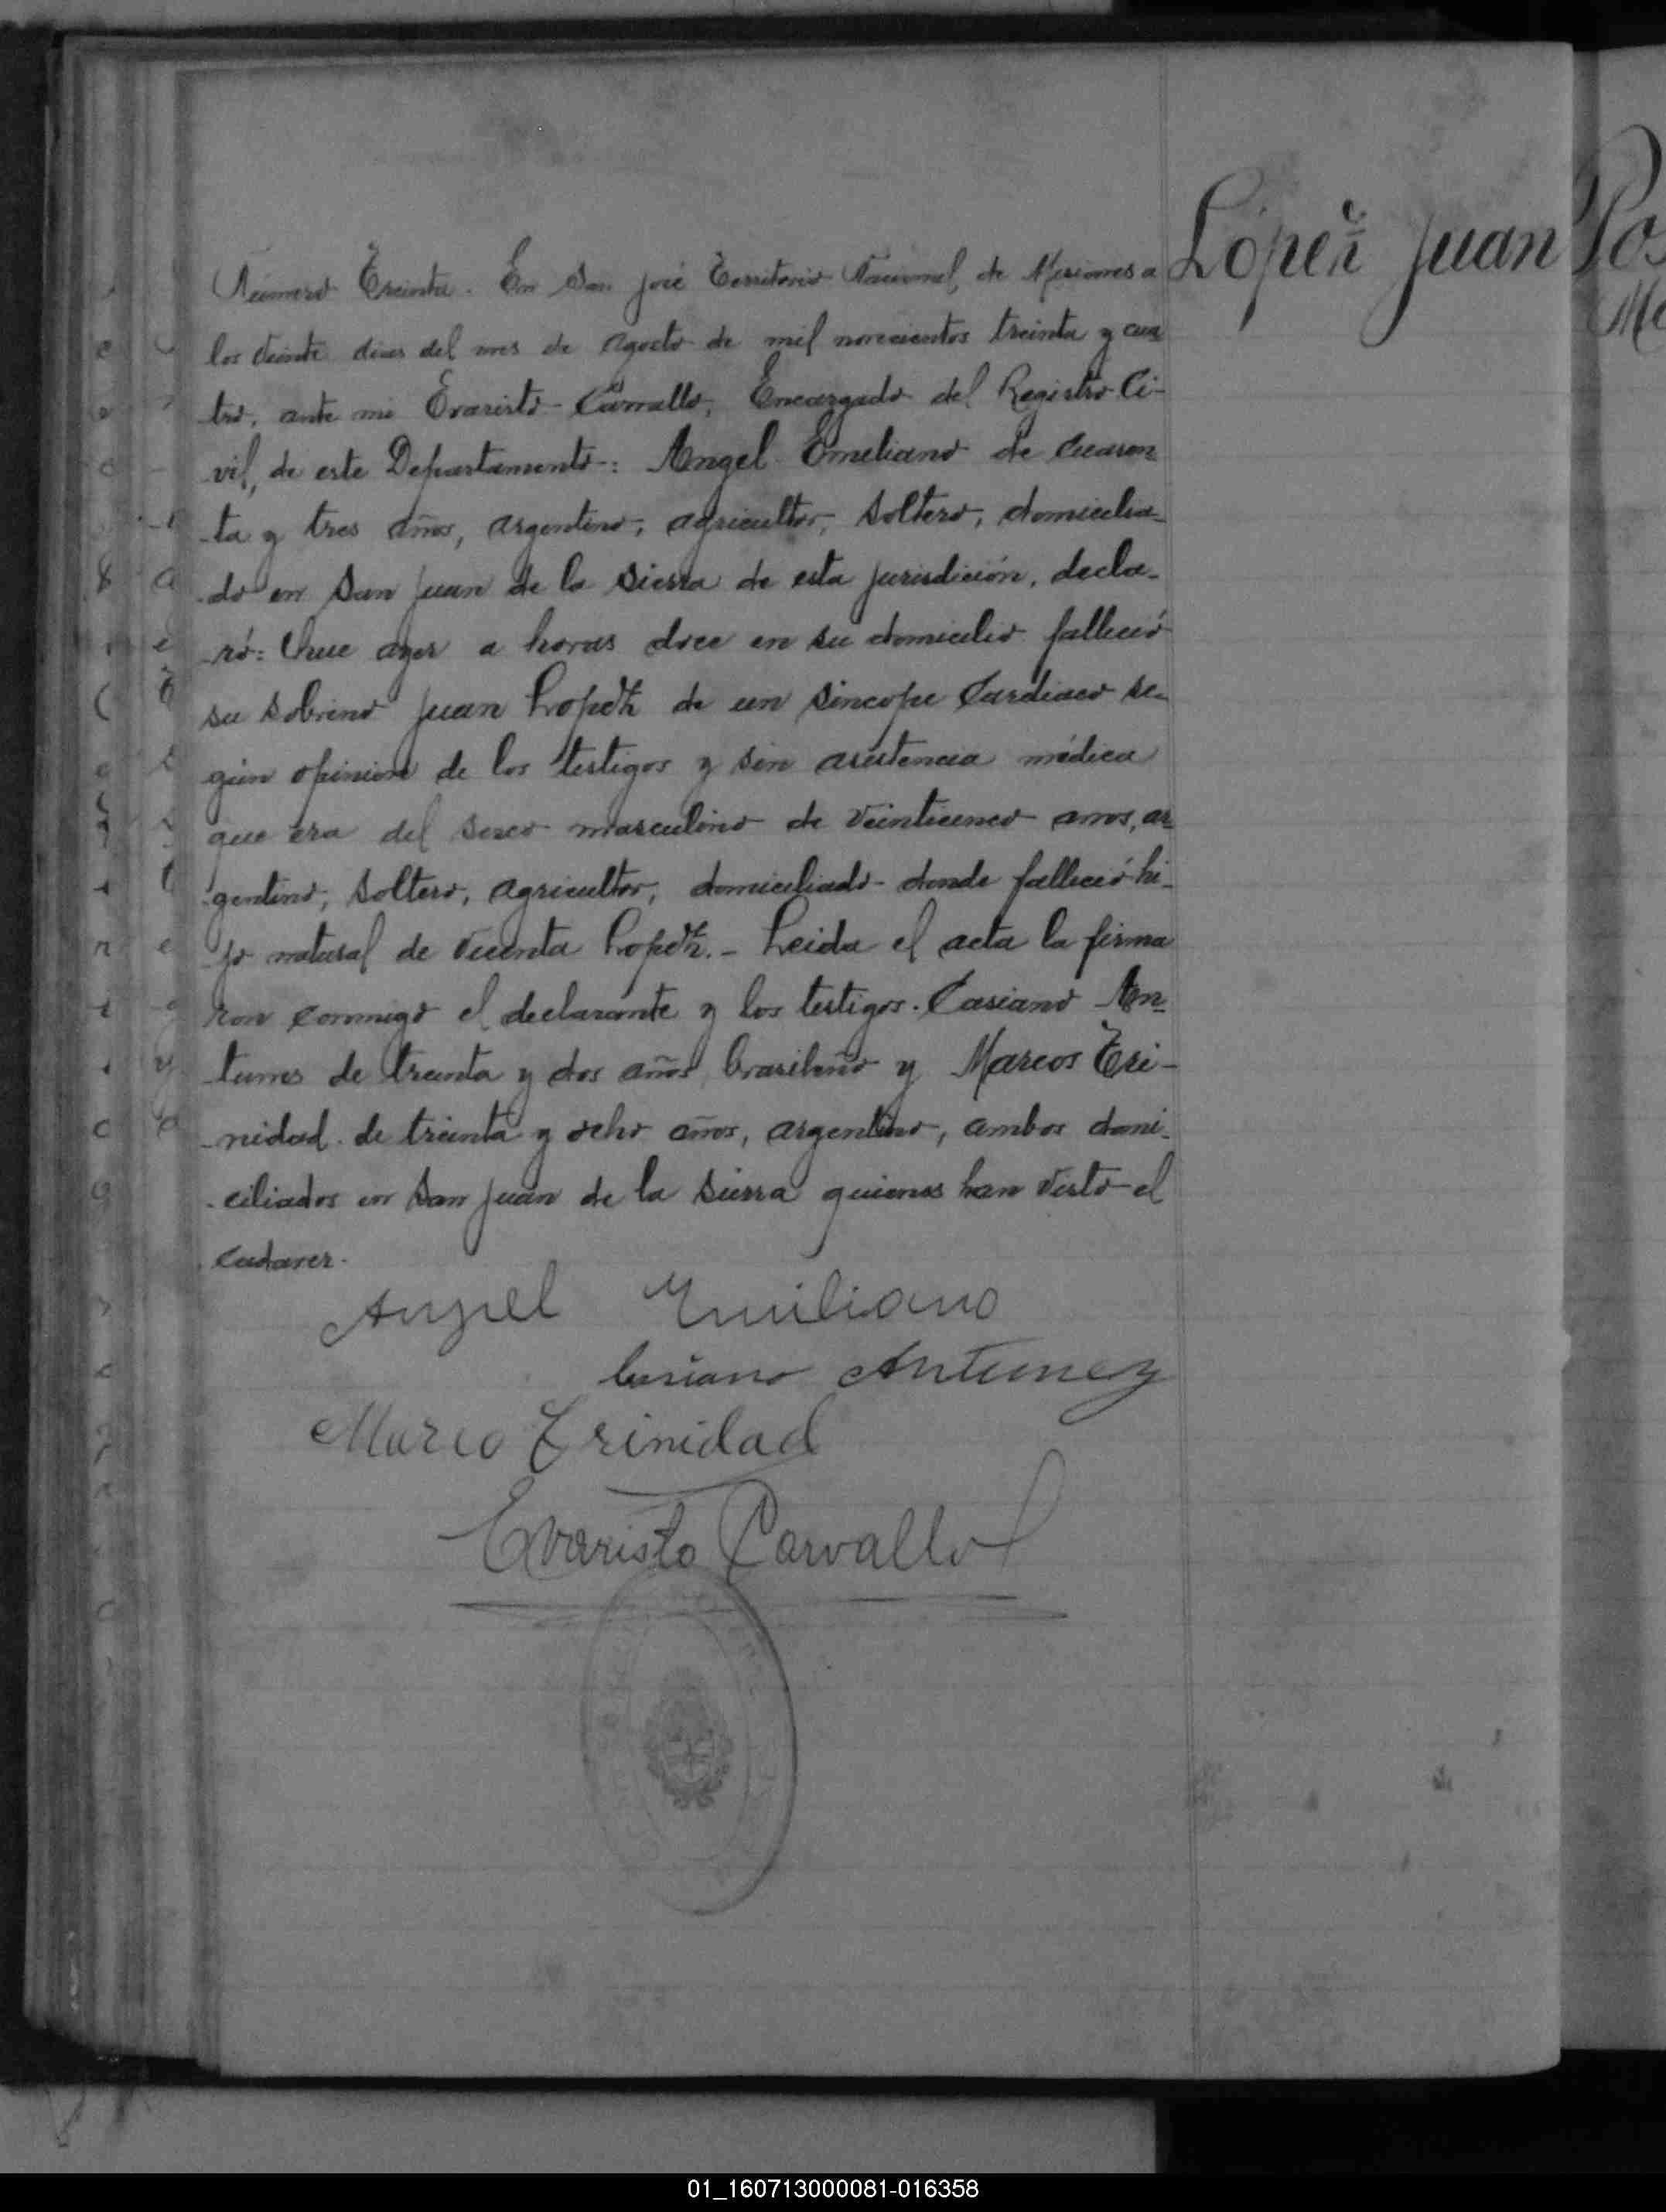 López Juan
Número Treinta. En San José Territorio Nacional, de Misiones a
los veinte dias del mes de Agosto de mil novecientos treinta y cua
tro, ante mi Evaristo Carvallo, Encargado del Registro Ci-
vil, de este Departamento: Angel Emeliano de cuaren
ta y tres años, argentino, agricultor, soltero, domicilia-
do en San Juan de la Sierra de esta jurisdición, decla-
ró: Que ayer a horas doce en su domicilio falleció
su sobrino Juan Lopez de un sincope Cardiaco se-
gún opinion de los testigos y sin asistencia médica
que era del sexo masculino de veinticinco anos, ar-
gentino, soltero, agricultor, domiciliado donde falleció hi-
jo natural de Vicenta Lopez. - Leida el acta la firma
ron conmigo el declarante y los testigos. Casiano An-
tunes de treinta y dos años, brasileño y Marcos Tri-
nidad de treinta y ocho años, argentino, ambos domi-
ciliados en San Juan de la Sierra quienes han visto el
cadaver.
Angel Emiliano
Casiano Antunez
Marco Trinidad
Evaristo Carvallo
01_160713000081-016358